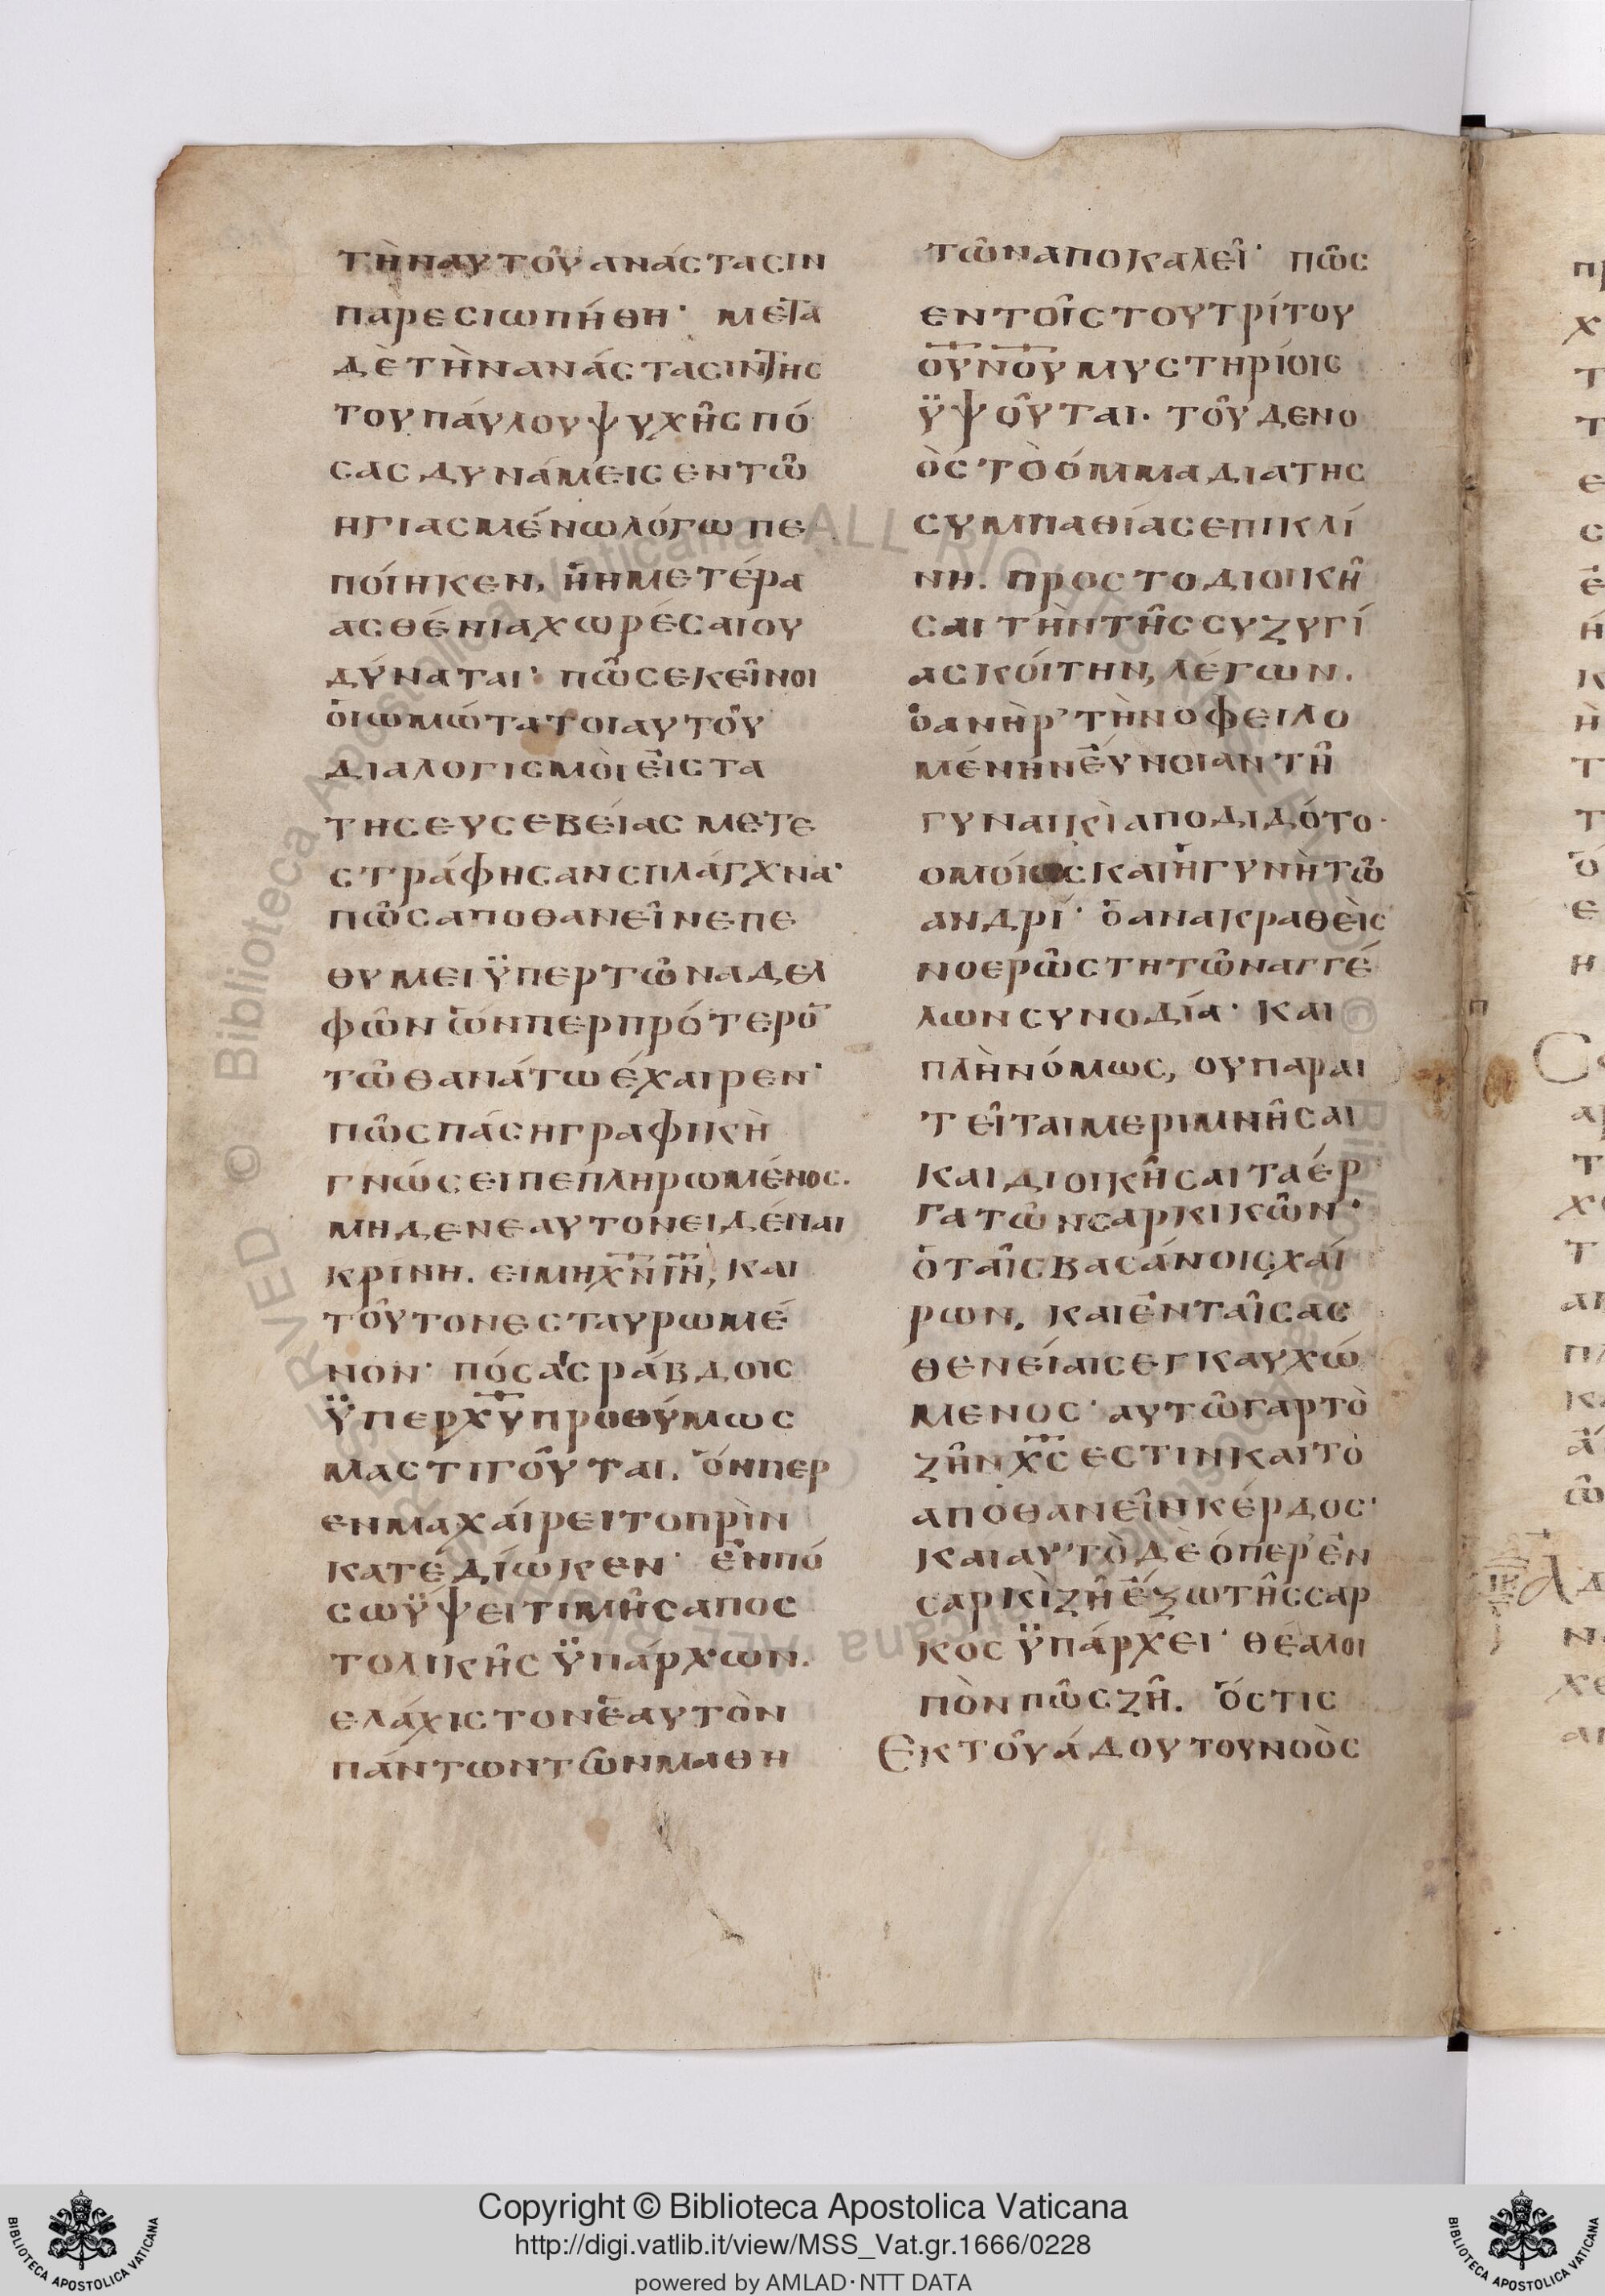 τὴν αυτοῦ ανάστασιν
παρεσιωπήθη· μετα
δὲ τὴν ανάστασιν της
του παύλου ψυχῆς πό
σας δυνάμεις εν τῶ
ηγιασμένω λόγω πε
ποίηκεν, ἡ ημετέρα
ασθένια χωρέσαι ου
δύναται· πῶς εκεῖνοι
ὁι ωμώτατοι αυτοῦ
διαλογισμὸι εἰς τα
της ευσεβείας μετε
στράφησαν σπλάγχνα·
πῶς αποθανεῖν επε
θυμει ϋπερ τῶν αδελ
φῶν ὧνπερ πρότερον
τῶ θανάτω έχαιρεν·
πῶς πάση γραφικὴ
γνώσει πεπληρωμένος.
μηδεν εαυτον ειδέναι
κρινη. ει μη χ̅ν̅ ι̅ν̅, και
τοῦτον εσταυρωμέ
νον· πόσας ράβδοις
ϋπερ χ̅υ̅ προθύμως
μαστιγοῦται. ὅνπερ
εν μαχαίρει το πρὶν
κατεδίωκεν· ἐν πό
σω ϋψει τιμῆς απος
τολικῆς ϋπάρχων.
ελάχιστον ἑαυτὸν
πάντων τῶν μαθη
τῶν αποκαλεῖ· πῶς
εν τοῖς του τρίτου
ο̅υ̅ν̅ο̅υ̅ μυστηρίοις
ϋψοῦται. τοῦ δε νο
ὸς τὸ όμμα δια της
συμπαθίας επικλί
νη. προς το διοικῆ
σαι τὴν τῆς συζυγί
ας κοίτην, λέγων.
ὁ ανὴρ τὴν οφειλο
μένην εύνοιαν τῆ
γυναικὶ αποδιδότο·
ομοίως και ἡ γυνὴ τῶ
ανδρί· ὁ ανακραθεὶς
νοερῶς τη τῶν αγγέ
λων συνοδία· και
πλὴν όμως, ου παραι
τεῖται μεριμνῆσαι
και διοικῆσαι τα έρ
γα τῶν σαρκικῶν·
ὁ ταῖς βασάνοις χαί
ρων, και ἐν ταῖς ασ
θενείαις εγκαυχώ
μενος· αυτῶ γαρ τὸ
ζῆν χ̅ς̅ εστιν και τὸ
αποθανεῖν κέρδος·
και αυτὸ δὲ όπερ ἐν
σαρκὶ ζῆ ἔξω τῆς σαρ
κος ϋπάρχει· θέα λοι
πὸν πῶς ζῆ. ὅστις
Εκ τοῦ άδου του νοὸς